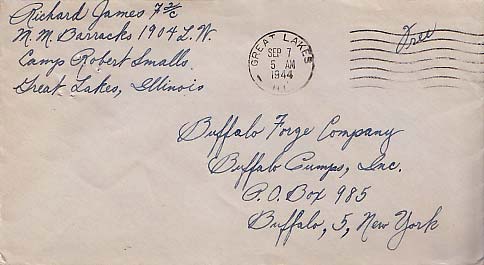 Richard James F 2/c
M.M. Barracks 1904 L.W.
Camp Robert Smalls.
Great Lakes, Illinois
GREAT LAKES
SEP 7
5 AM
1944
ILL.
Free
Buffalo Forge Company
Buffalo Pumps, Inc.
P.O. Box 985
Buffalo, 5, New York